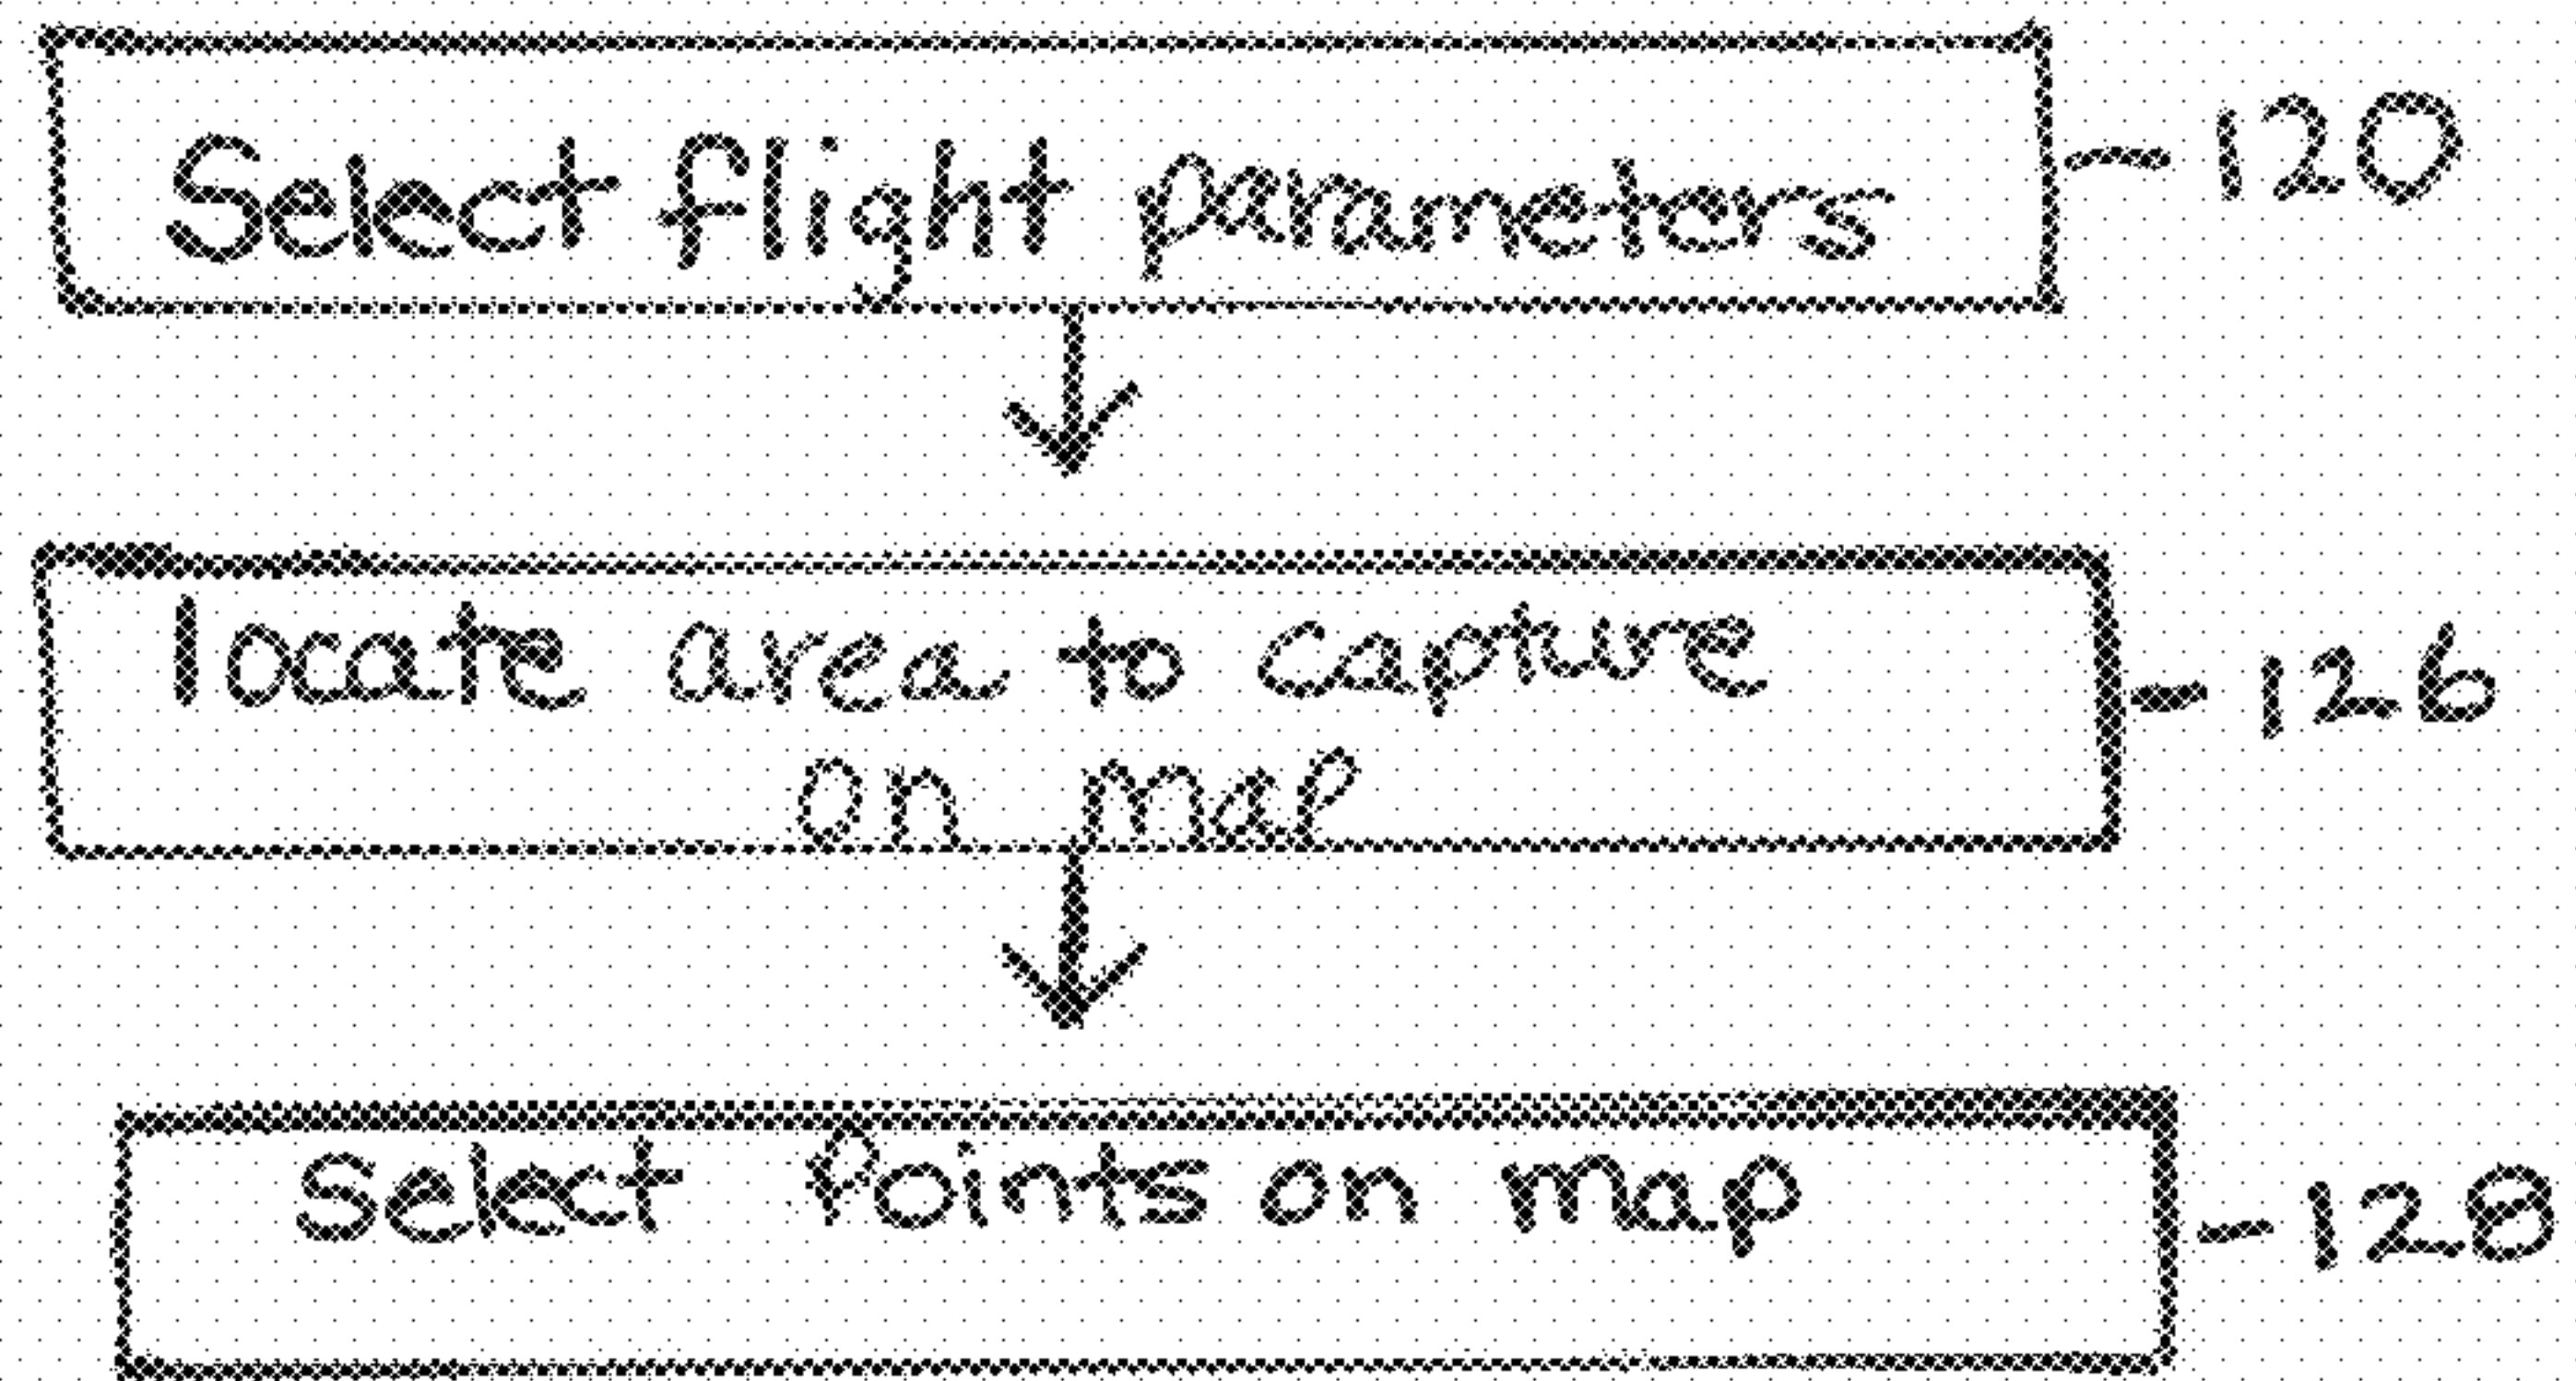 Select flight parameters - 120
locate area to capture - 126
on map
Select Points on map - 128